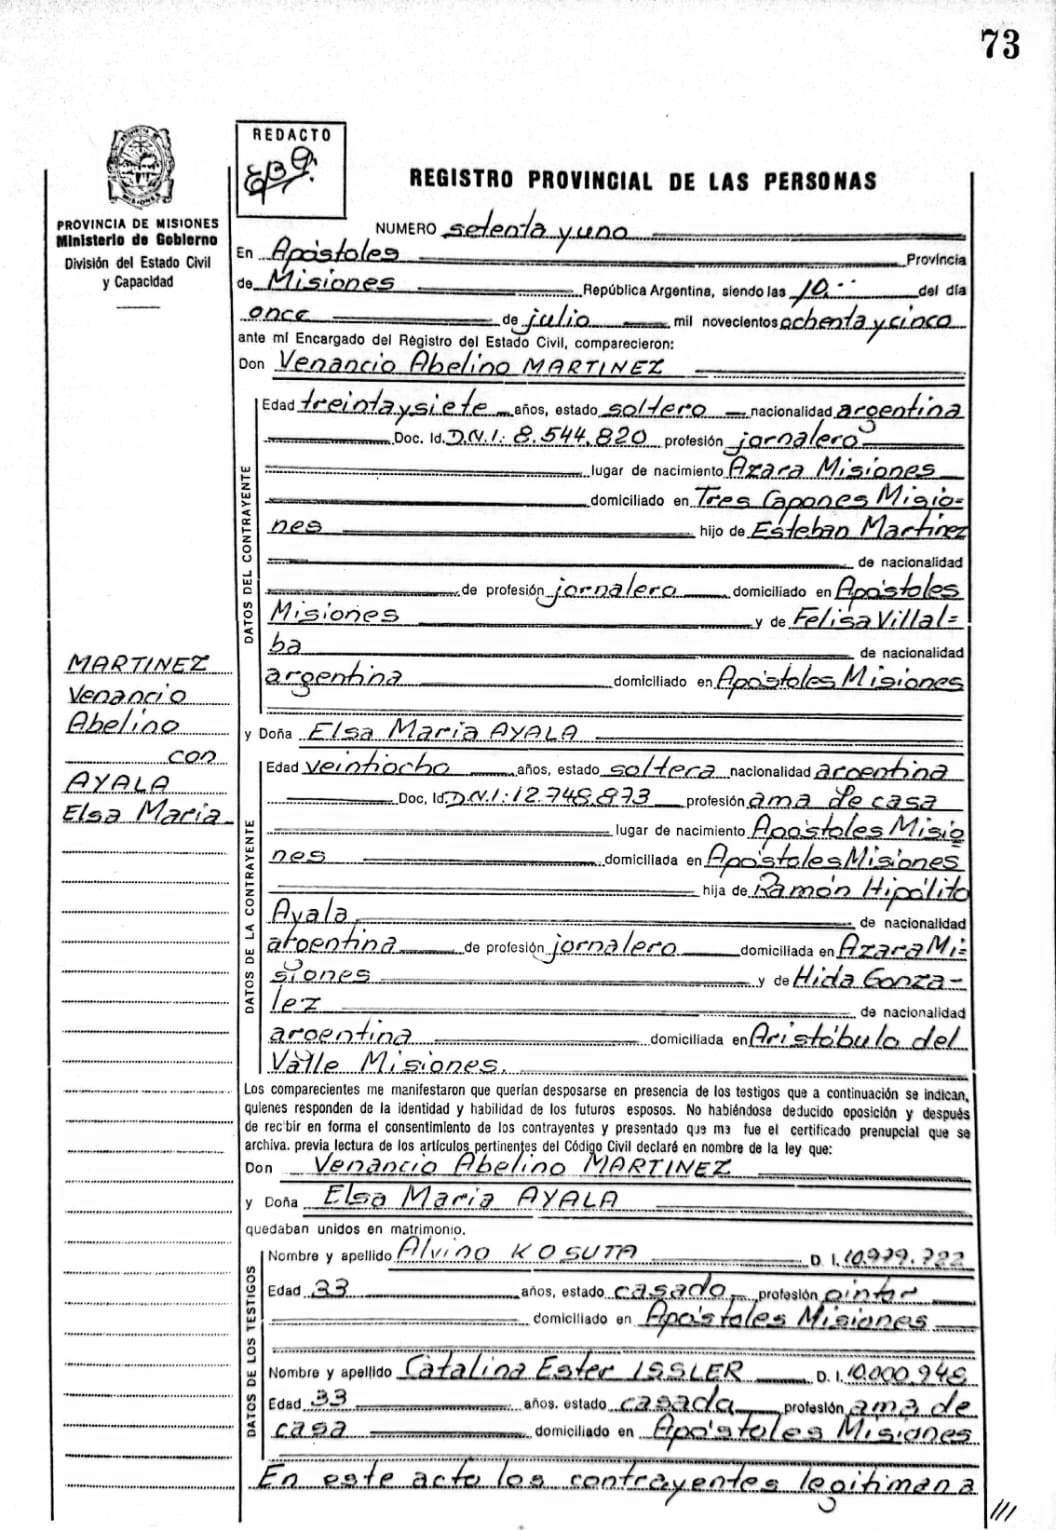 73
REDACTO
PROVINCIA DE MISIONES
Ministerio de Gobierno
División del Estado Civil
y Capacidad
REGISTRO PROVINCIAL DE LAS PERSONAS
NUMERO setenta y uno
En Apóstoles Provincia
de Misiones República Argentina, siendo las 10 del día
once de julio mil novecientos ochenta y cinco
ante mi Encargado del Registro del Estado Civil, comparecieron:
Don Venancio Abelino MARTINEZ
DATOS DEL CONTRAYENTE
Edad treinta y siete años, estado soltero nacionalidad argentina
Doc. Id. D.N.I: 8.544.820 profesión jornalero
lugar de nacimiento Azara Misiones
domiciliado en Tres Capones Misio=
nes hijo de Esteban Martínez
de nacionalidad
de profesión jornalero domiciliado en Apóstoles
Misiones y de Felisa Villal=
ba de nacionalidad
argentina domiciliado en Apóstoles Misiones
MARTINEZ
Venancio
Abelino
con
AYALA
Elsa Maria
y Doña Elsa Maria AYALA
DATOS DE LA CONTRAYENTE
Edad veintiocho años, estado soltera nacionalidad argentina
Doc. Id. D.N.I: 12.748.873 profesión ama de casa
lugar de nacimiento Apóstoles Misio
nes domiciliada en Apóstoles Misiones
hija de Ramón Hipólito
Ayala de nacionalidad
argentina de profesión jornalero domiciliada en Azara Mi=
siones y de Hida Gonza-
lez de nacionalidad
argentina domiciliada en Aristóbulo del
Valle Misiones.
Los comparecientes me manifestaron que querían desposarse en presencia de los testigos que a continuación se indican,
quienes responden de la identidad y habilidad de los futuros esposos. No habiéndose deducido oposición y después
de recibir en forma el consentimiento de los contrayentes y presentado que me fue el certificado prenupcial que se
archiva. previa lectura de los artículos pertinentes del Código Civil declaré en nombre de la ley que:
Don Venancio Abelino MARTINEZ
y Doña Elsa Maria AYALA
quedaban unidos en matrimonio.
DATOS DE LOS TESTIGOS
Nombre y apellido Alvino KOSUTA D. I.
Edad 33 años, estado casado profesión pintor
domiciliado en Apóstoles Misiones
Nombre y apellido Catalina Ester ISSLER D. I.
Edad 33 años. estado casada profesión ama de
casa domiciliado en Apóstoles Misiones
En este acto los contrayentes legitiman a
///